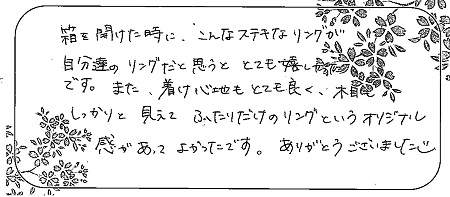 箱を開けた時に、こんなステキなリングが
自分達のリングだと思うと とても嬉しかった
です。また、着け心地もとても良く、木目も
しっかりと見えて ふたりだけのリングというオリジナル
感があって よかったです。ありがとうございました